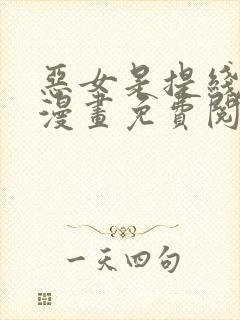 惡女是提綫
漫畫免費閱
一天四句